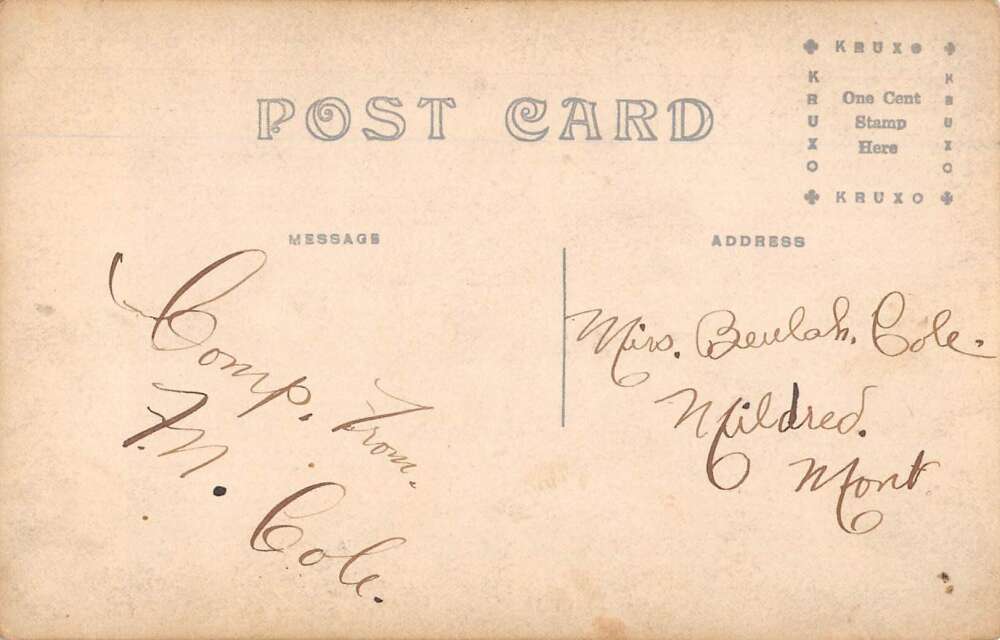 POST CARD
KRUXO
KRUXO
One Cent
Stamp
Here
KRUXO
KRUXO
MESSAGE
Comp. From.
F. M.
Cole.
ADDRESS
Mrs. Beulah. Cole.
Mildred.
Mont